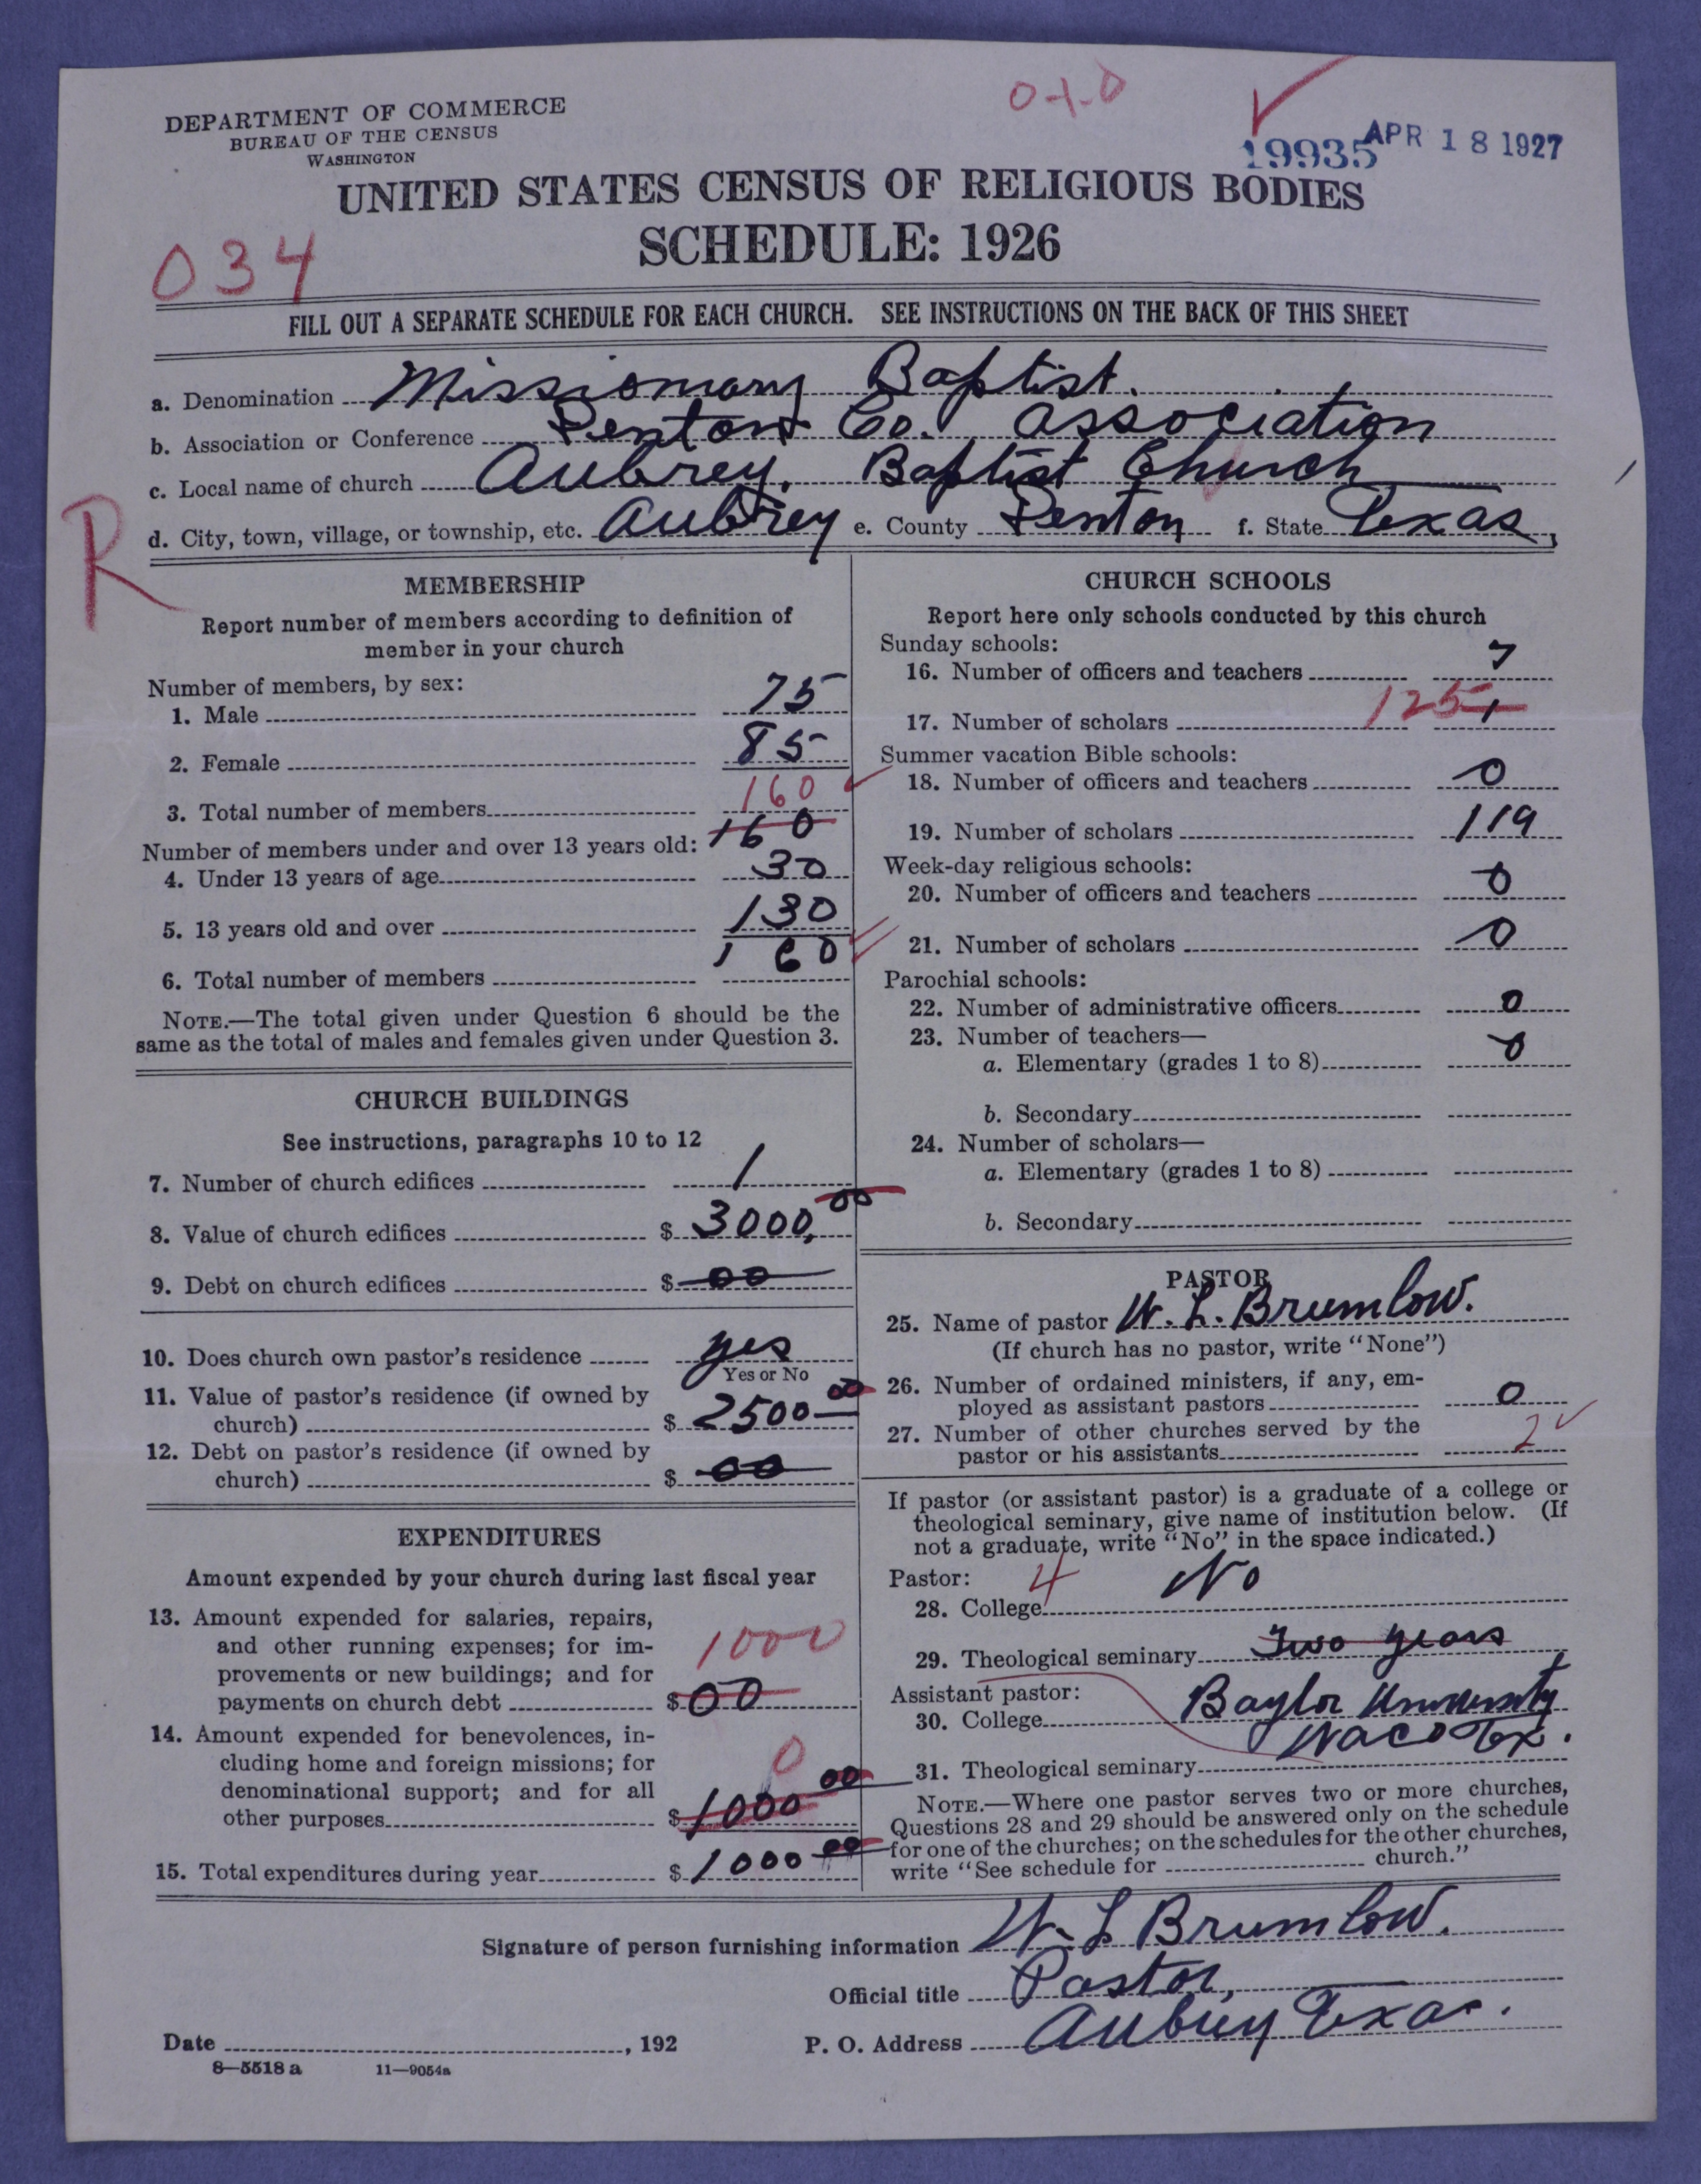 DEPARTMENT OF COMMERCE
BUREAU OF THE CENSUS
WASHINGTON
19935 APR 18 1927
UNITED STATES CENSUS OF RELIGIOUS BODIES
SCHEDULE: 1926
034
FILL OUT A SEPARATE SCHEDULE FOR EACH CHURCH. SEE INSTRUCTIONS ON THE BACK OF THIS SHEET
a. Denomination Missionary Baptist.
b. Association or Conference Denton Co. Association
c. Local name of church Aubrey, Baptist Church
d. City, town, village, or township, etc. Aubrey e. County Denton f. State Texas,
R
MEMBERSHIP
Report number of members according to definition of
member in your church
Number of members, by sex:
1. Male 75
2. Female 85
160
3. Total number of members
160
Number of members under and over 13 years old:
4. Under 13 years of age 30
5. 13 years old and over 130
6. Total number of members 160
NOTE.—The total given under Question 6 should be the
same as the total of males and females given under Question 3.
CHURCH BUILDINGS
See instructions, paragraphs 10 to 12
7. Number of church edifices 1
8. Value of church edifices $ 3000,00
9. Debt on church edifices $ 00
10. Does church own pastor's residence yes
Yes or No
11. Value of pastor's residence (if owned by
church) $ 2500 00
12. Debt on pastor's residence (if owned by
church) $ 00
EXPENDITURES
Amount expended by your church during last fiscal year
13. Amount expended for salaries, repairs,
and other running expenses; for im-
provements or new buildings; and for
payments on church debt $ 00
1000
14. Amount expended for benevolences, in-
cluding home and foreign missions; for
denominational support; and for all
other purposes $ 1000 00
0
15. Total expenditures during year $ 1000 00
CHURCH SCHOOLS
Report here only schools conducted by this church
Sunday schools:
16. Number of officers and teachers 7
17. Number of scholars 125
Summer vacation Bible schools:
18. Number of officers and teachers 0
19. Number of scholars 119
Week-day religious schools:
20. Number of officers and teachers 0
21. Number of scholars 0
Parochial schools:
22. Number of administrative officers 0
23. Number of teachers—
a. Elementary (grades 1 to 8) 0
b. Secondary
24. Number of scholars—
a. Elementary (grades 1 to 8)
b. Secondary
PASTOR
25. Name of pastor W. L. Brumlow.
(If church has no pastor, write "None")
26. Number of ordained ministers, if any, em-
ployed as assistant pastors 0
27. Number of other churches served by the
pastor or his assistants 2
If pastor (or assistant pastor) is a graduate of a college or
theological seminary, give name of institution below. (If
not a graduate, write "No" in the space indicated.)
Pastor: 4
28. College No
29. Theological seminary Two years
Assistant pastor:
30. College Baylor University
Waco Tex.
31. Theological seminary
NOTE.—Where one pastor serves two or more churches,
Questions 28 and 29 should be answered only on the schedule
for one of the churches; on the schedules for the other churches,
write "See schedule for church."
Signature of person furnishing information W. L Brumlow.
Official title Pastor,
Date , 192 P. O. Address Aubrey Texas.
8—5518 a 11—9054a